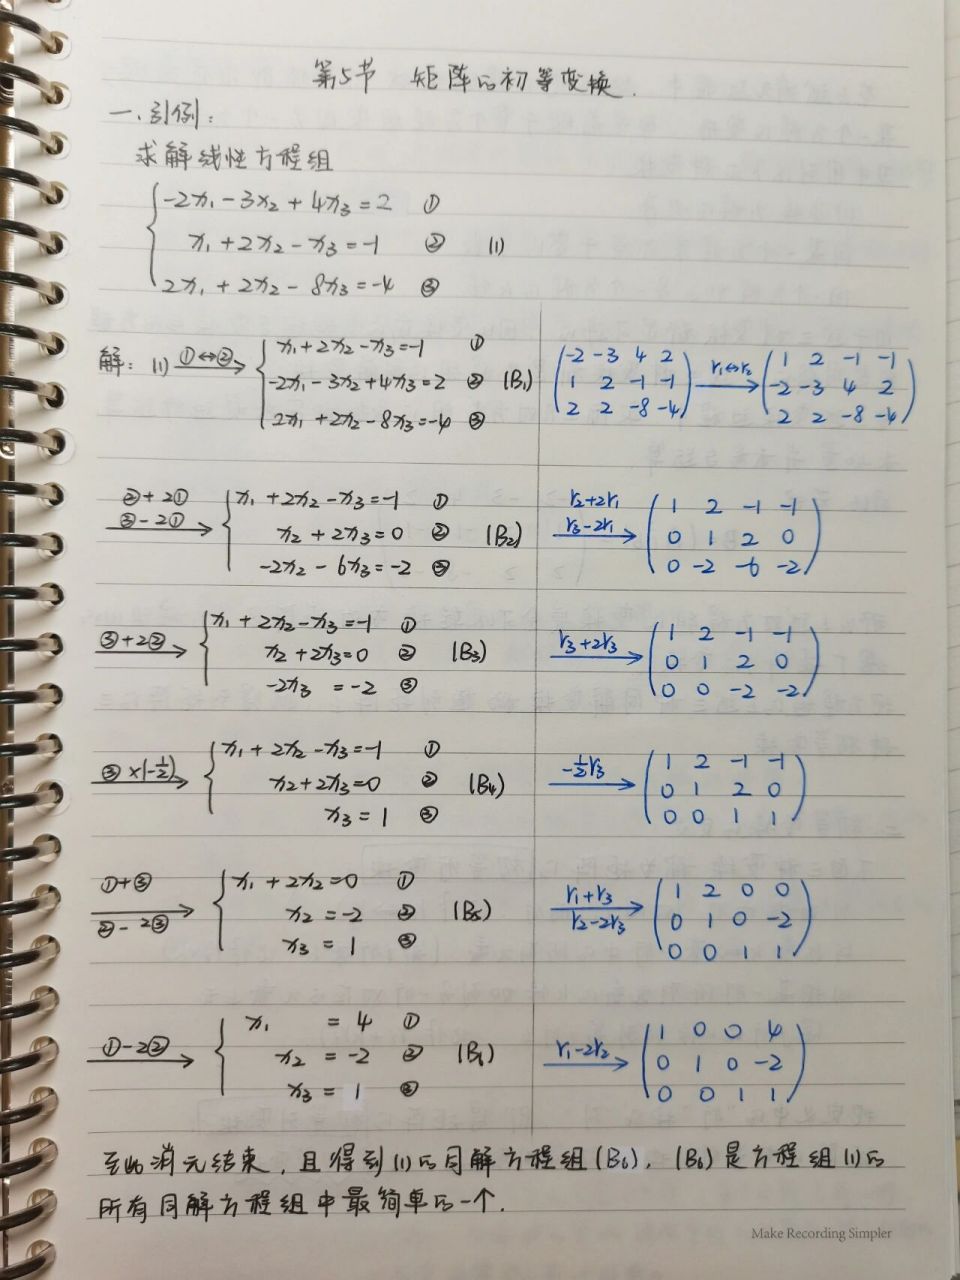 第5节 矩阵的初等变换.
一.引例:
求解线性方程组
-2x₁-3x₂+4x₃=2 ①
x₁+2x₂-x₃=-1 ② (1)
2x₁+2x₂-8x₃=-4 ③
解: (1) ①↔② x₁+2x₂-x₃=-1 ①
-2x₁-3x₂+4x₃=2 ② (B₁)
2x₁+2x₂-8x₃=-4 ③
-2 -3 4 2
1 2 -1 -1
2 2 -8 -4
r₁↔r₂
1 2 -1 -1
-2 -3 4 2
2 2 -8 -4
②+2①
③-2①
x₁+2x₂-x₃=-1 ①
x₂+2x₃=0 ② (B₂)
-2x₂-6x₃=-2 ③
r₂+2r₁
r₃-2r₁
1 2 -1 -1
0 1 2 0
0 -2 -6 -2
③+2②
x₁+2x₂-x₃=-1 ①
x₂+2x₃=0 ② (B₃)
-2x₃=-2 ③
r₃+2r₃
1 2 -1 -1
0 1 2 0
0 0 -2 -2
③×(-1/2)
x₁+2x₂-x₃=-1 ①
x₂+2x₃=0 ② (B₄)
x₃=1 ③
-1/2r₃
1 2 -1 -1
0 1 2 0
0 0 1 1
①+③
②-2③
x₁+2x₂=0 ①
x₂=-2 ② (B₅)
x₃=1 ③
r₁+r₃
r₂-2r₃
1 2 0 0
0 1 0 -2
0 0 1 1
①-2②
x₁=4 ①
x₂=-2 ② (B₆)
x₃=1 ③
r₁-2r₂
1 0 0 4
0 1 0 -2
0 0 1 1
至此消元结束,且得到(1)的同解方程组(B₆),(B₆)是方程组(1)的
所有同解方程组中最简单的一个.
Make Recording Simpler